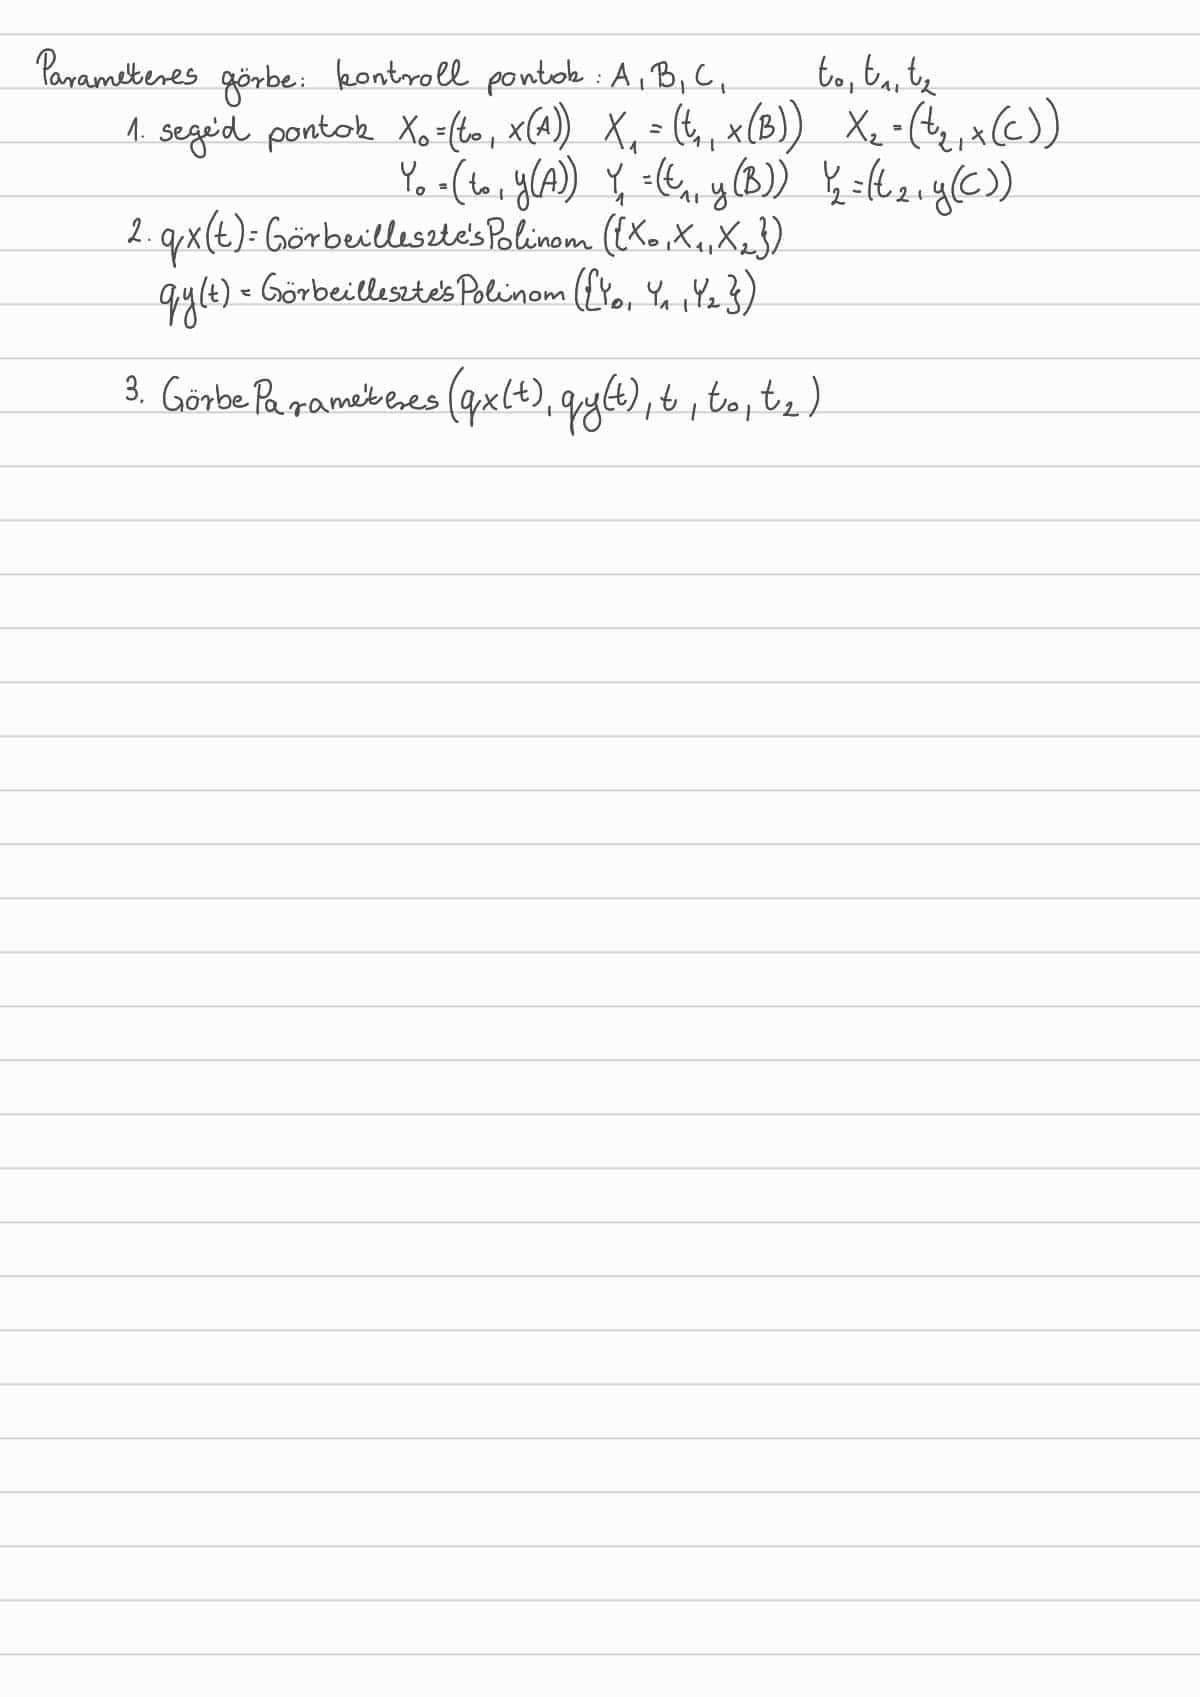 Paraméteres görbe: kontroll pontok: A, B, C, t₀, t₁, t₂
1. segéd pontok X₀=(t₀, x(A)) X₁=(t₁, x(B)) X₂=(t₂, x(C))
Y₀=(t₀, y(A)) Y₁=(t₁, y(B)) Y₂=(t₂, y(C))
2. qx(t)=GörbeillesztésPolinom({X₀, X₁, X₂})
qy(t)=GörbeillesztésPolinom({Y₀, Y₁, Y₂})
3. GörbeParaméteres(qx(t), qy(t), t, t₀, t₂)